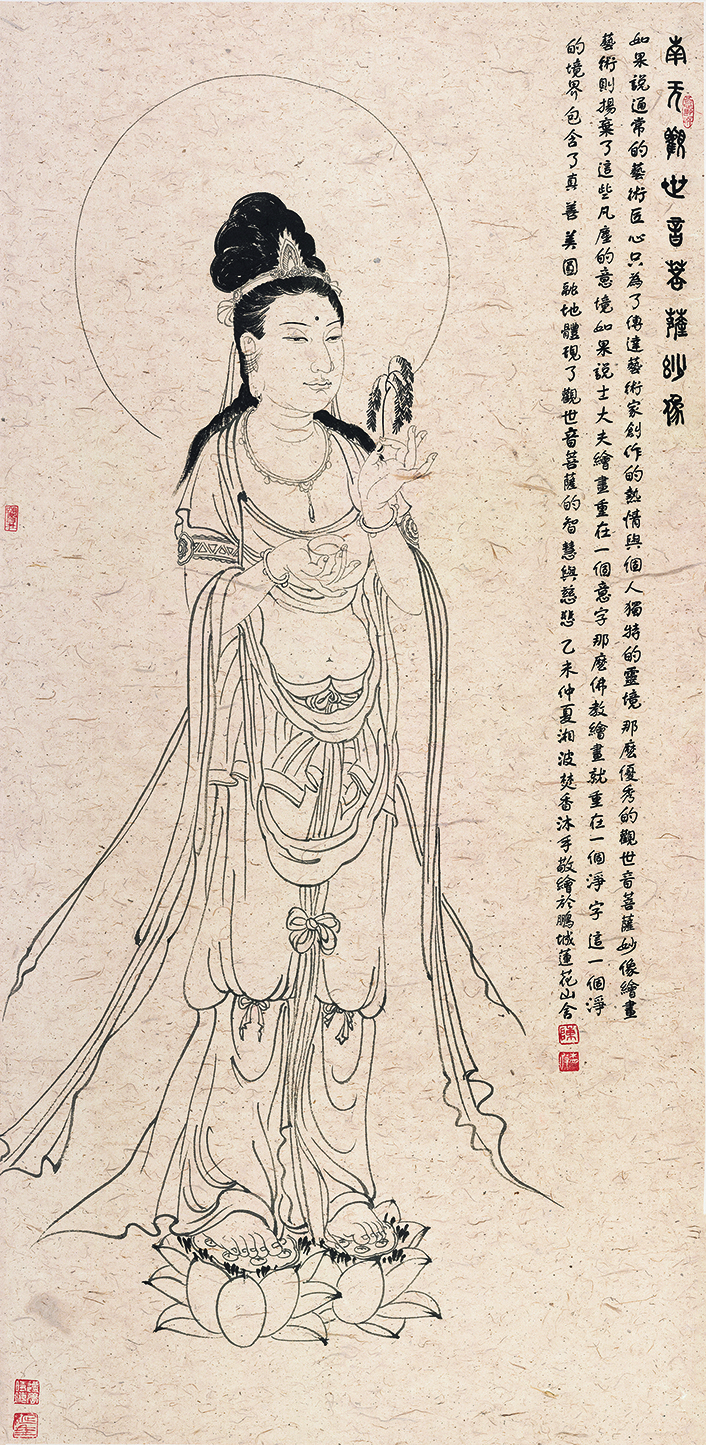 南无觀世音菩薩妙像
如果說通常的藝術匠心只為了傳達藝術家創作的熱情與個人獨特的靈境那麼優秀的觀世音菩薩妙像繪畫
藝術則揚棄了這些凡塵的意境如果說士大夫繪畫重在一個意字那麼佛教繪畫就重在一個淨字這一個淨
的境界包含了真善美圓融地體現了觀世音菩薩的智慧與慈悲乙未仲夏湘波焚香沐手敬繪於鵬城蓮花山舍
陳